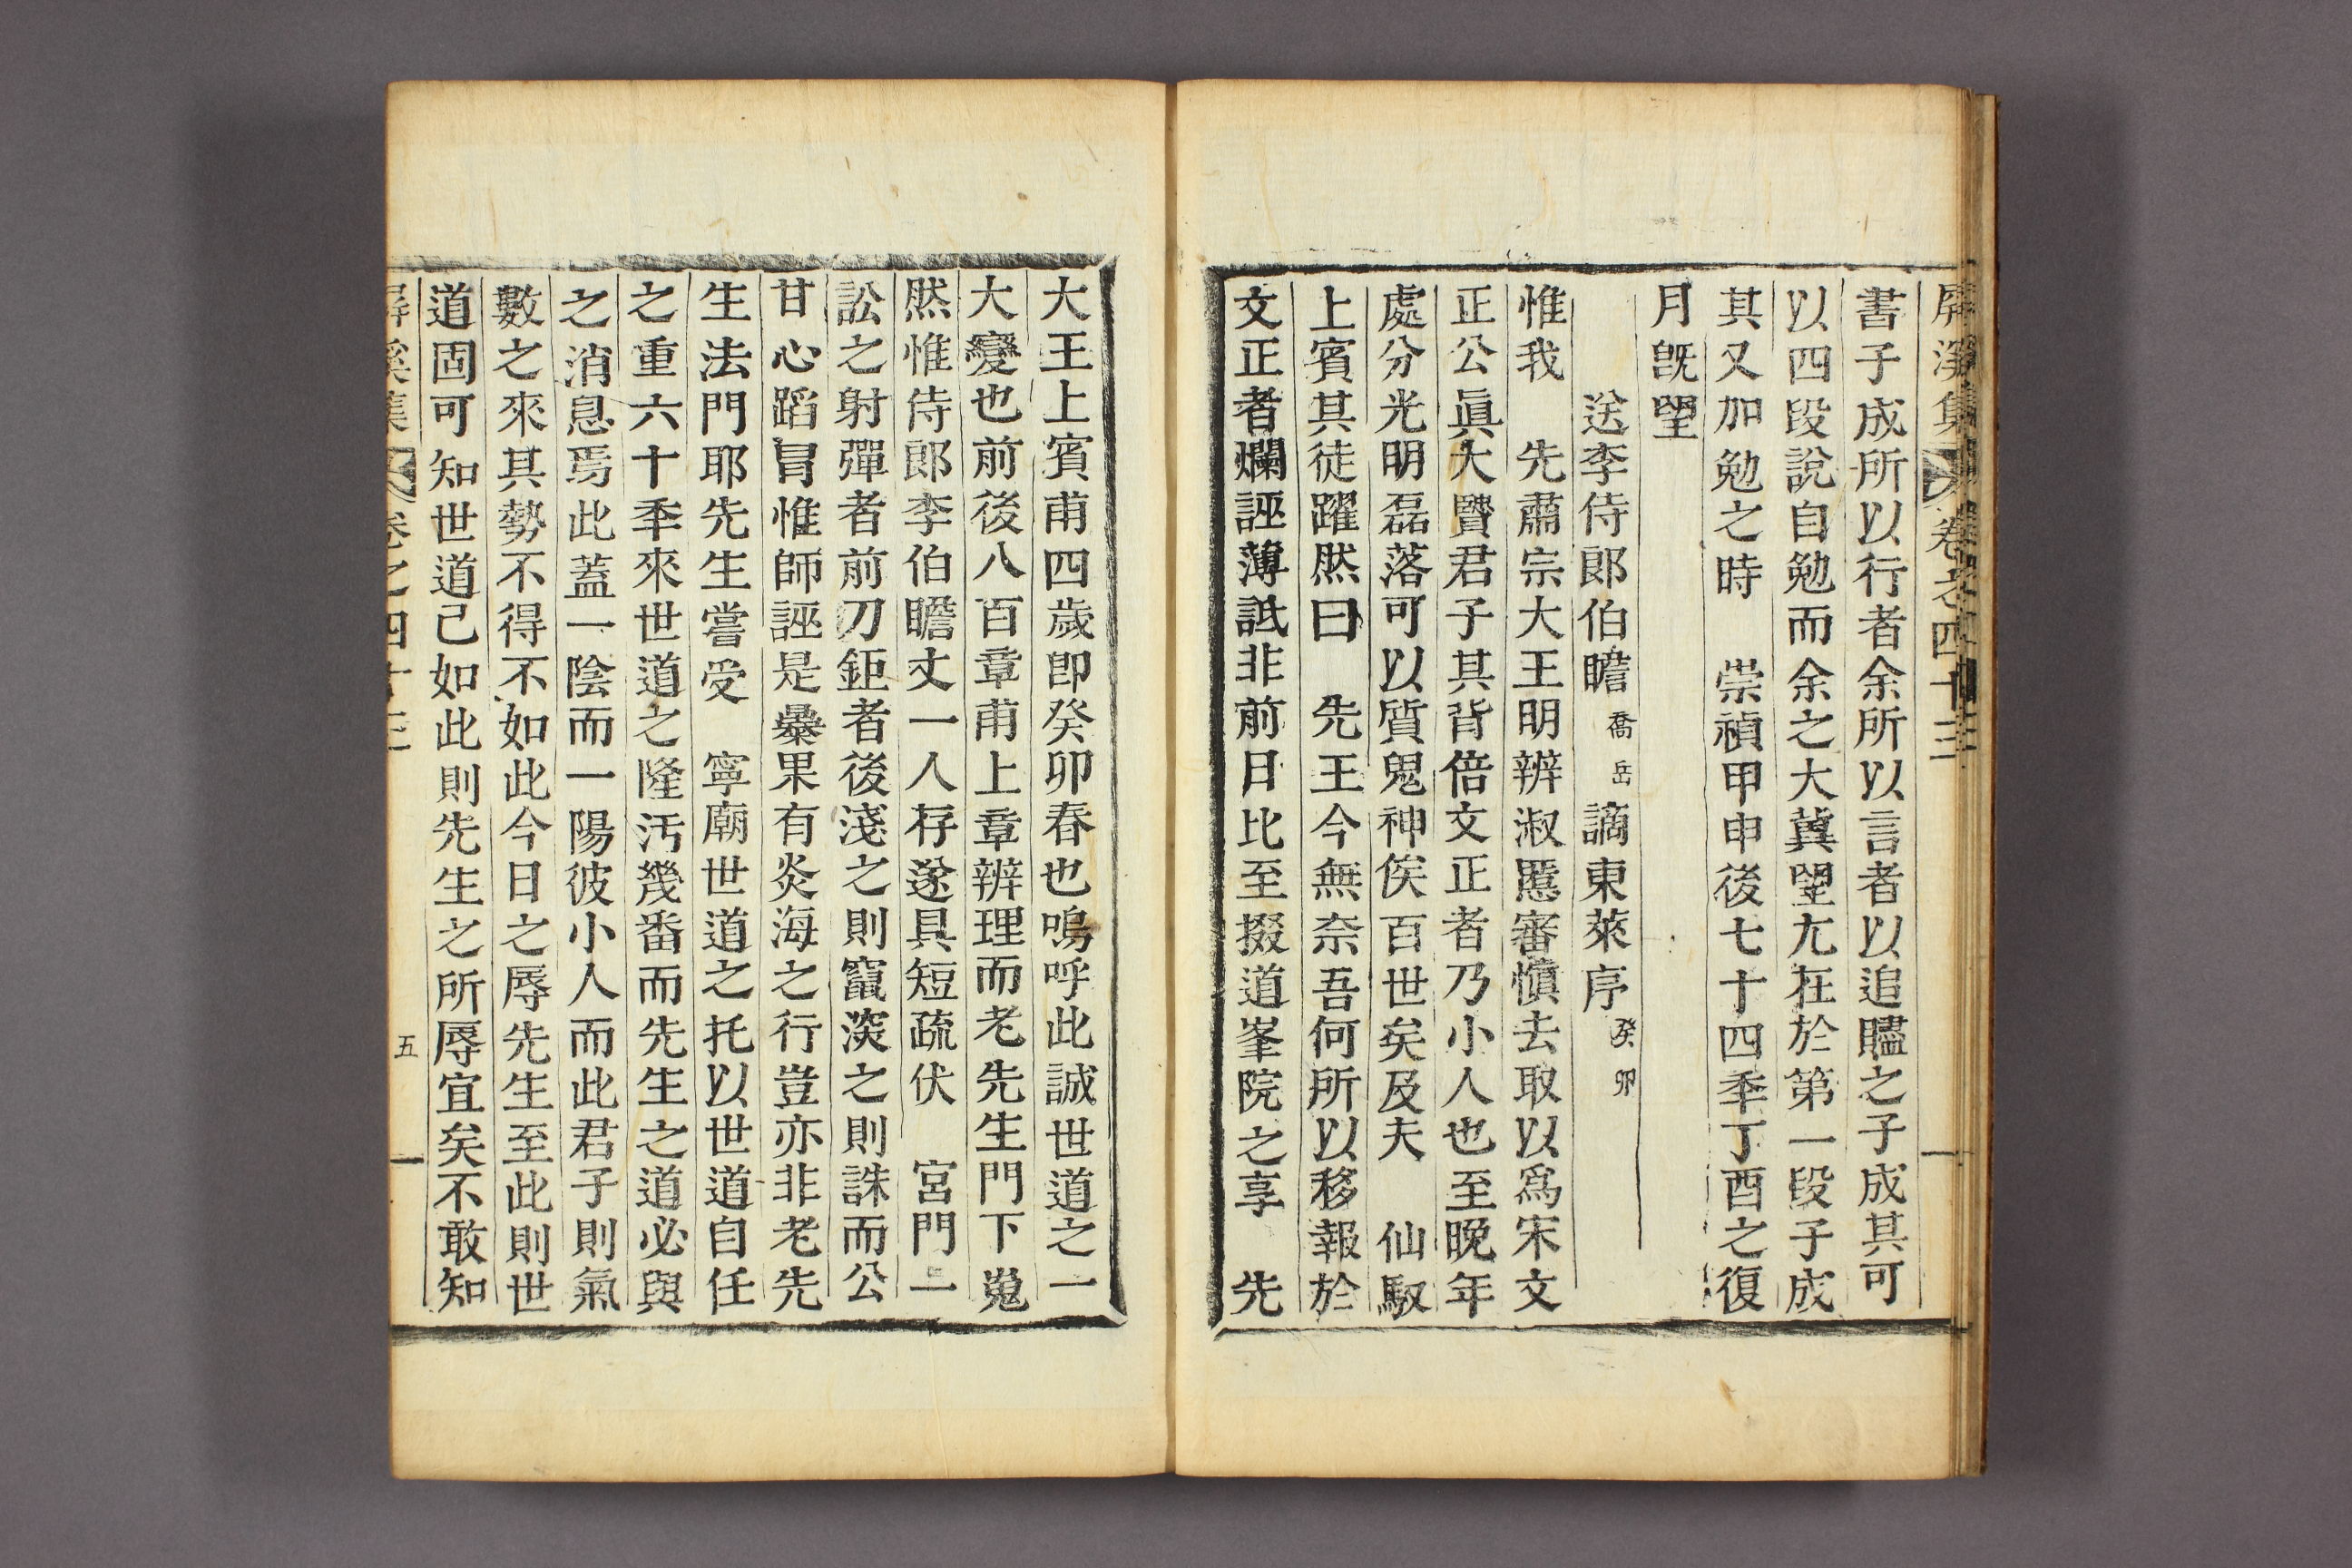 屛溪集 卷之四十三
書子成所以行者余所以言者以追贐之子成其可
以四段說自勉而余之大冀望尢在於第一段子成
其又加勉之時 崇禎甲申後七十四秊丁酉之復
月旣望
送李侍郞伯瞻喬岳謫東萊序癸卯
惟我 先肅宗大王明辨淑慝審愼去取以爲宋文
正公眞大賢君子其背倍文正者乃小人也至晩年
處分光明磊落可以質鬼神俟百世矣及夫 仙馭
上賓其徒躍然曰 先王今無奈吾何所以移報於
文正者爛誣薄詆非前日比至掇道峯院之享 先
大王上賓甫四歲卽癸卯春也嗚呼此誠世道之一
大變也前後八百章甫上章辨理而老先生門下嵬
然惟侍郞李伯瞻丈一人存遂具短疏伏 宮門一
訟之射彈者前刀鉅者後淺之則竄深之則誅而公
甘心蹈冒惟師誣是㬥果有炎海之行豈亦非老先
生法門耶先生嘗受 寧廟世道之托以世道自任
之重六十秊來世道之隆汚幾番而先生之道必與
之消息焉此蓋一陰而一陽彼小人而此君子則氣
數之來其勢不得不如此今日之辱先生至此則世
道固可知世道己如此則先生之所辱宜矣不敢知
屛溪集 卷之四十三 五